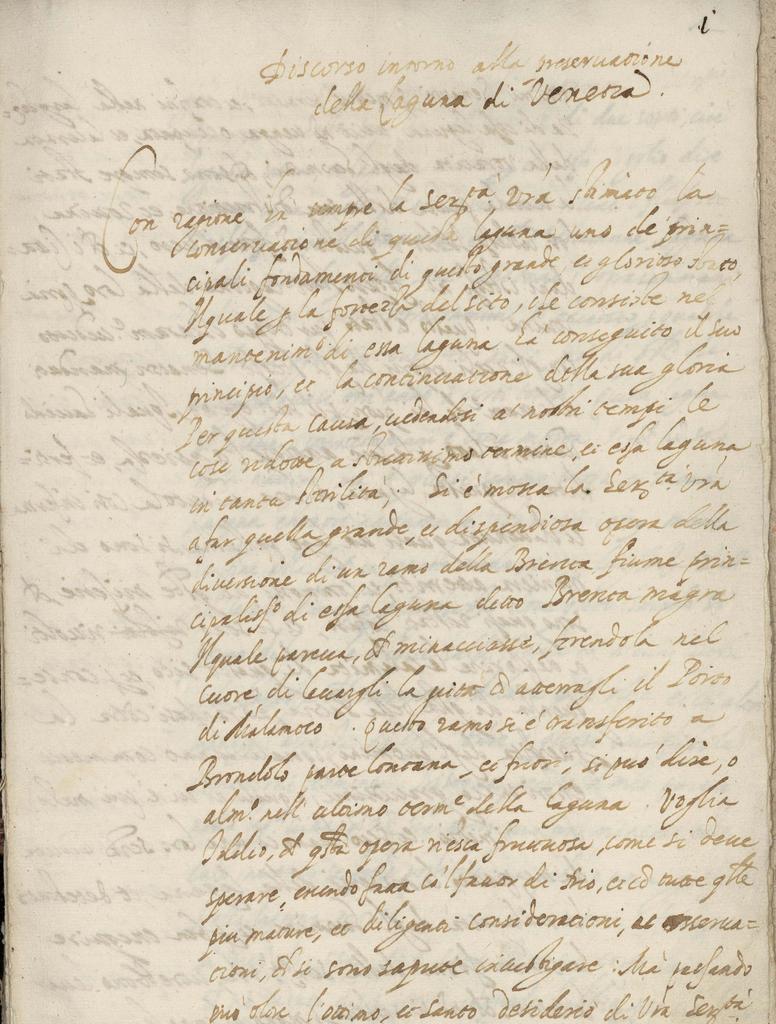 i
Discorso intorno alla preservatione
della laguna di Venetia.
Con ragione hà sempre la Ser.tà Vrã stimato la
conservatione di questa laguna uno de prin=
cipali fondamenti di questo grande, et glorioso stato,
Ilquale per la fortezza del sito, che consiste nel
mantenim.to di essa laguna hà conseguito il suo
principio, et la continuatione della sua gloria
Per questa causa, uedendosi a' nostri tempi le
cose ridotte a strettissimo termine, et essa laguna
in tanta sterilità, Si è mossa la Ser.tà Vrã
a far quella grande, et dispendiosa opera della
diversione di un ramo della Brenta fiume prin=
cipaliss.o di essa laguna detto Brenta magra
Ilquale pareua, che minacciasse, ferendola nel
cuore di leuargli la uita et atterragli il Porto
di Malamoco. Questo ramo si è transferito a
Brondolo parte lontana, et fuori, si può dire, o
alm.o nell'ultimo term.e della laguna. Voglia
Iddio, che q̃sta opera riesca fruttuosa, come si deue
sperare, essendo fatta cõ'l fauor di Dio, et cõ tutte q̃lle
piu mature, et diligenti considerationi, et osserua=
tioni, che si sono sapute inuestigare: Mà passando
più oltre l'ottimo, et santo desiderio di Vrã Ser.tà